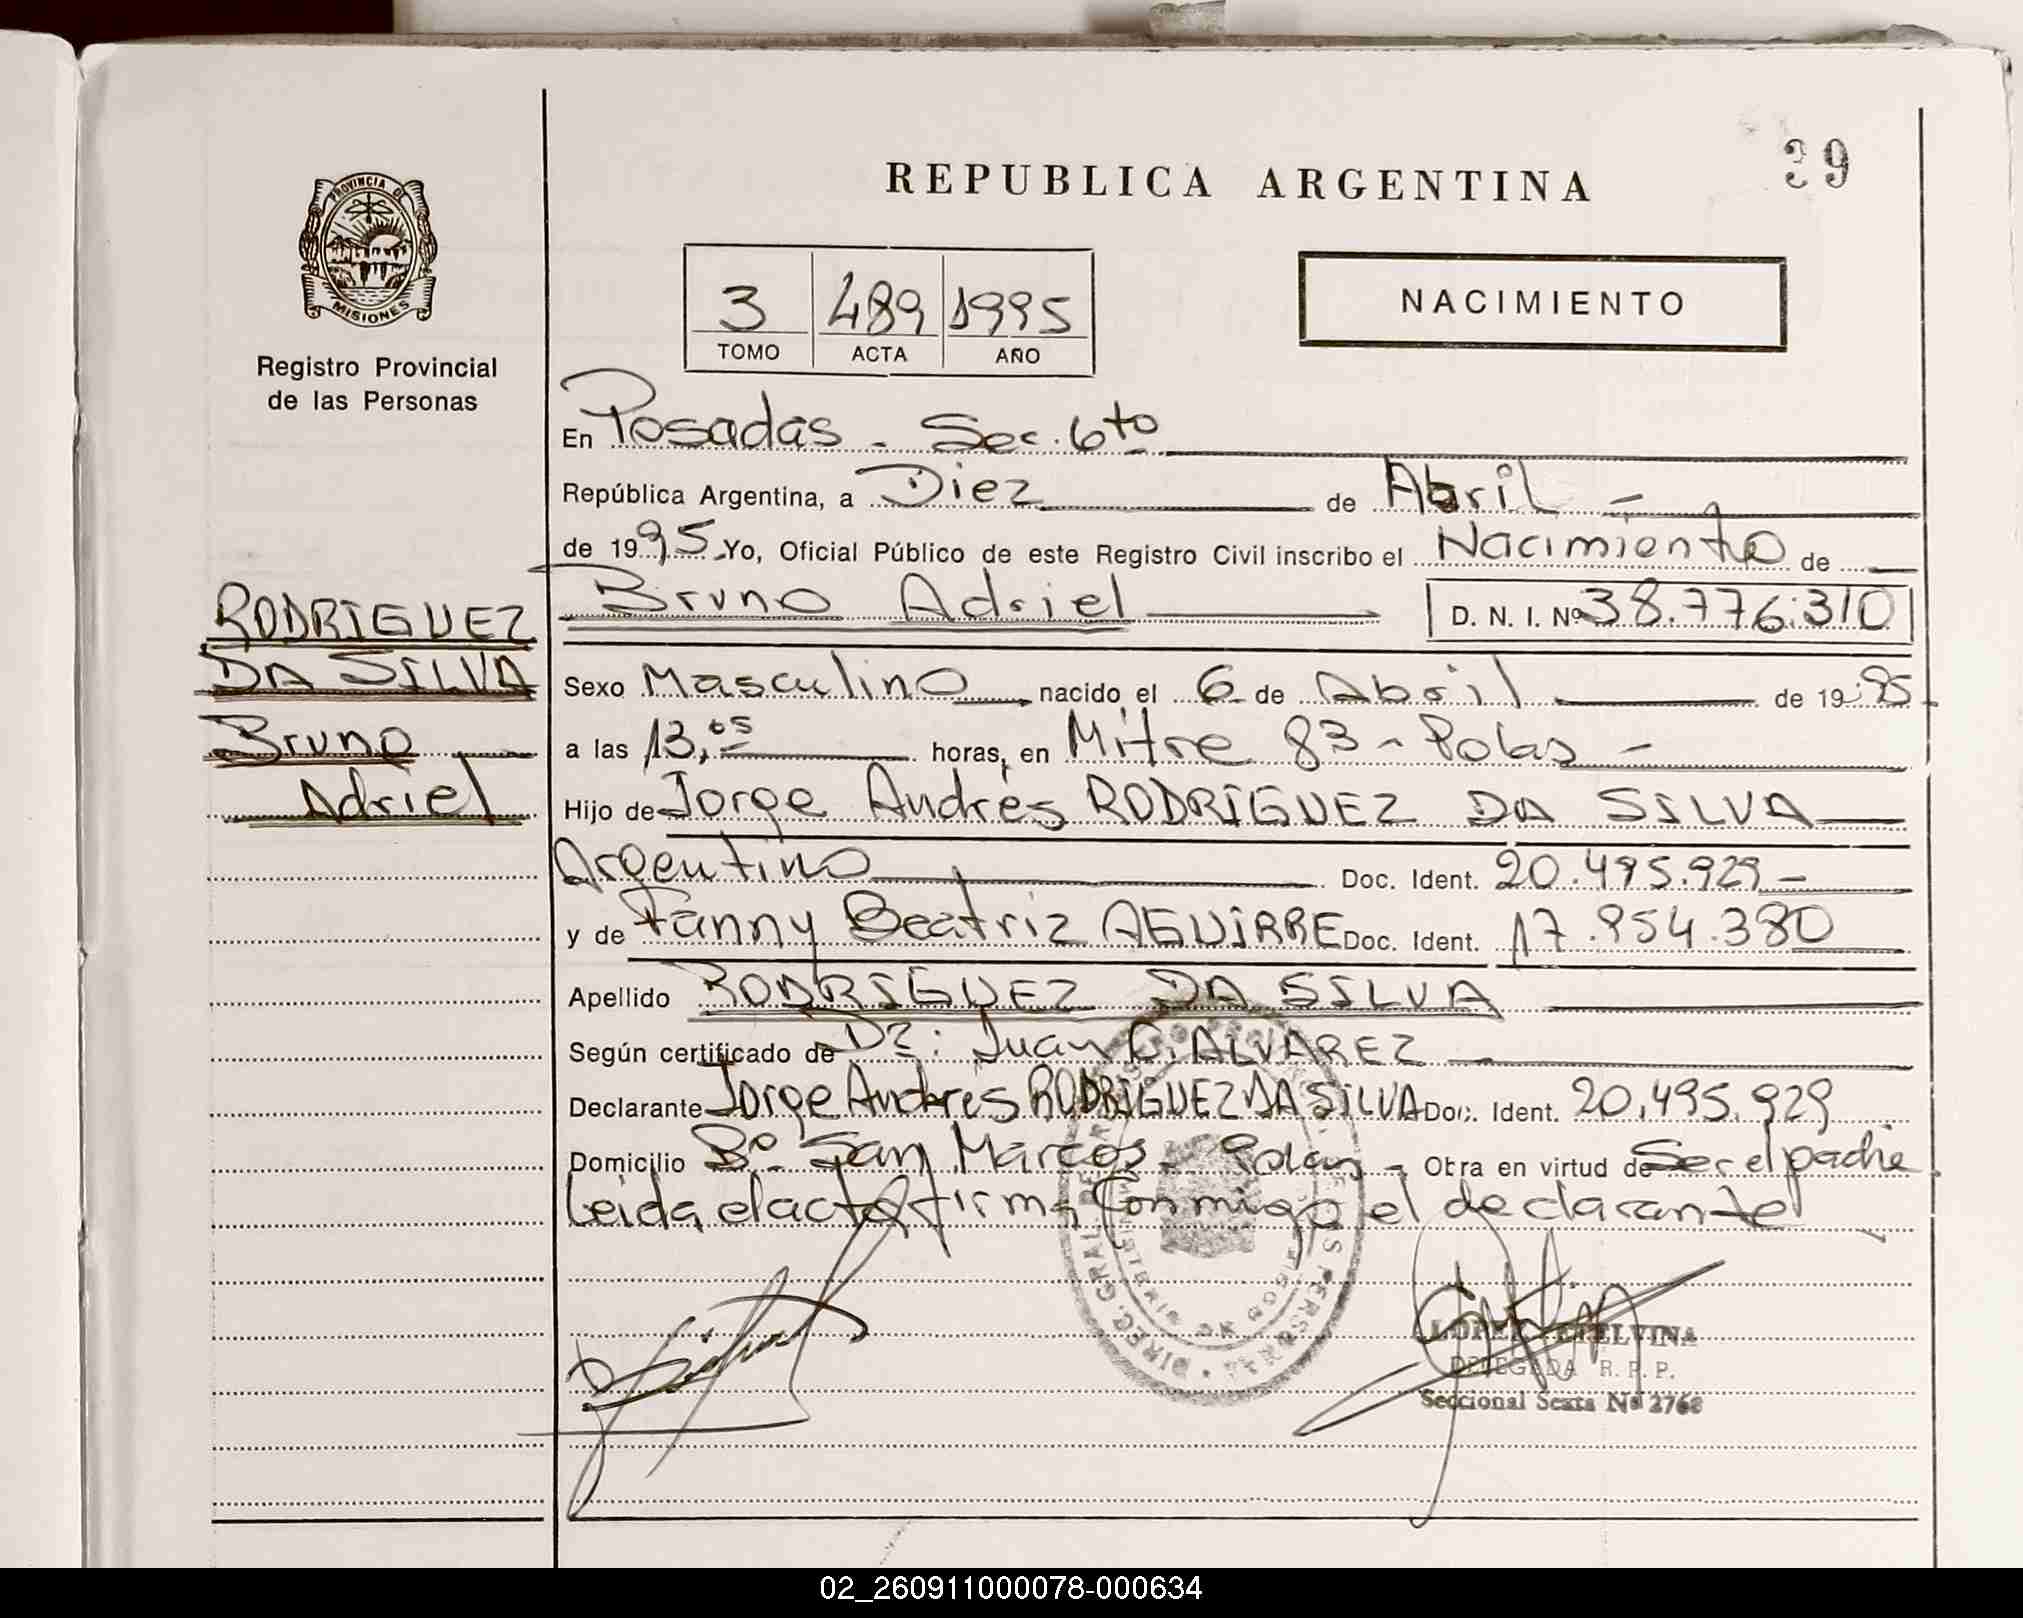 REPUBLICA ARGENTINA
39
PROVINCIA DE
MISIONES
Registro Provincial
de las Personas
3 489 1995
TOMO ACTA AÑO
NACIMIENTO
En Posadas - Sec. 6to
República Argentina, a Diez de Abril -
de 1995 Yo, Oficial Público de este Registro Civil inscribo el Nacimiento de
Bruno Adriel D. N. I. Nº 38.776.310
RODRIGUEZ
DA SILVA
Bruno
Adriel
Sexo Masculino nacido el 6 de Abril de 1995
a las 13,05 horas, en Mitre 83 - Pdas -
Hijo de Jorge Andrés RODRIGUEZ DA SILVA
Argentino Doc. Ident. 20.495.929 -
y de Fanny Beatriz AGUIRRE Doc. Ident. 17.954.380
Apellido RODRIGUEZ DA SILVA
Según certificado de Dr: Juan C. ALVAREZ
Declarante Jorge Andres RODRIGUEZ DA SILVA Doc. Ident. 20.495.929
Domicilio Bº San Marcos - Pdas - Obra en virtud de Ser el padre
Leida el acta firma Conmigo el declarante
LOPEZ ETELVINA
DELEGADA R. P. P.
Seccional Sexta Nº 2768
02_260911000078-000634